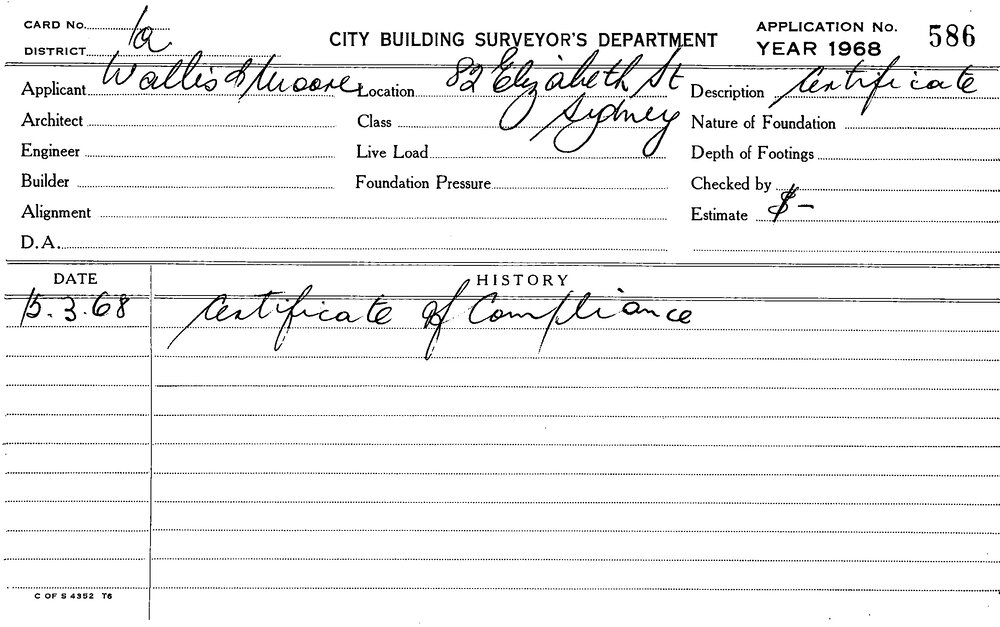 CARD No. 1a
DISTRICT
CITY BUILDING SURVEYOR'S DEPARTMENT
APPLICATION No. 586
YEAR 1968
Applicant Wallis & Moore Location 82 Elizabeth St Sydney Description Certificate
Architect Class Nature of Foundation
Engineer Live Load Depth of Footings
Builder Foundation Pressure Checked by
Alignment Estimate $-
D.A.
DATE HISTORY
15.3.68 Certificate of Compliance
C OF S 4352 T6